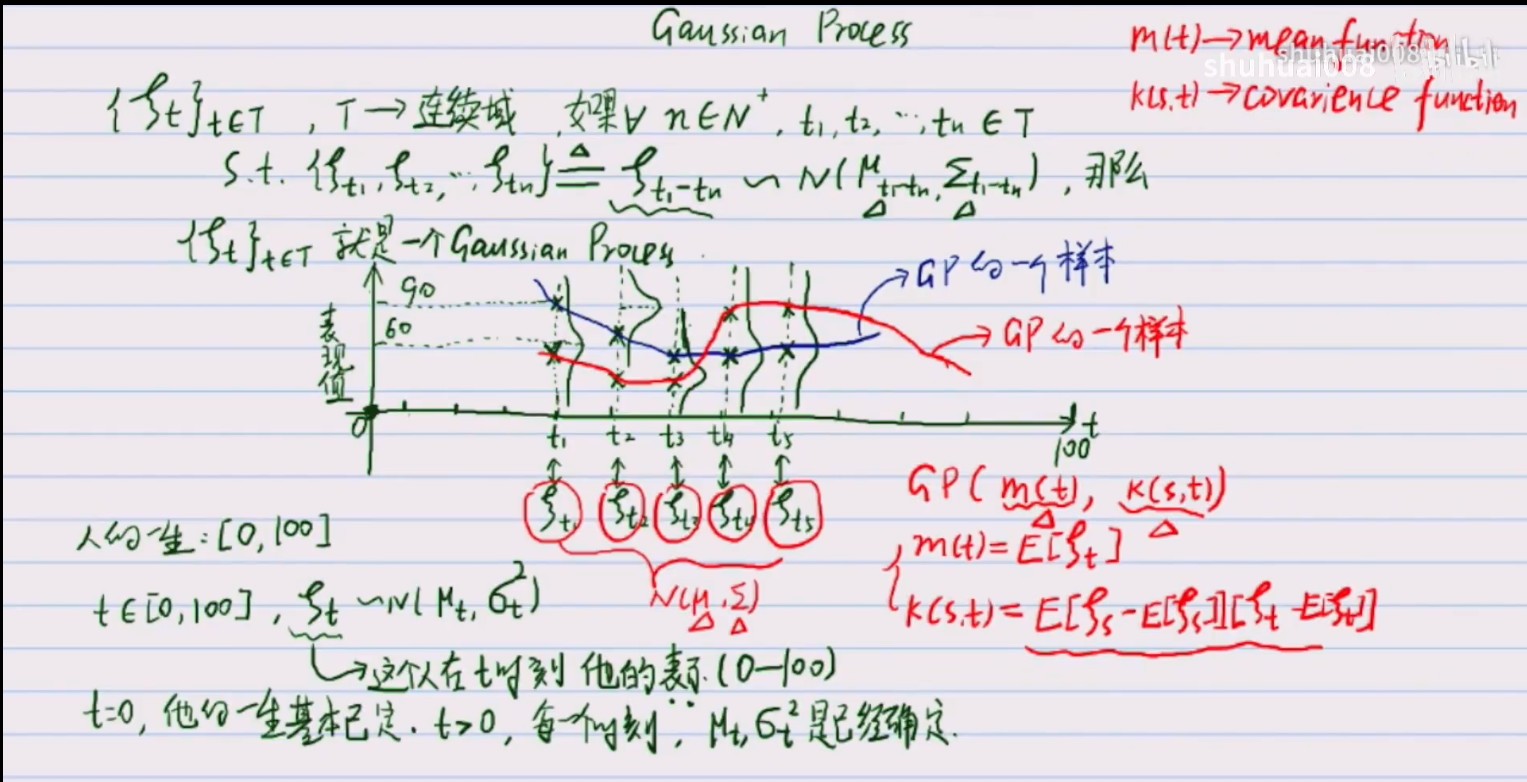 Gaussian Process
m(t)→mean function
shuhuai008
shuhuai008 bilibili
k(s,t)→covarience function
{ξt}t∈T , T→连续域 , 如果∀ n∈N⁺, t₁, t₂, …, tn ∈T
s.t. {ξt₁, ξt₂, …, ξtn} ≜ ξt₁-tn ~ N(μt₁-tn, Σt₁-tn) , 那么
{ξt}t∈T 就是一个Gaussian Process.
表现值
90
60
GP的一个样本
GP的一个样本
0
t₁ t₂ t₃ t₄ t₅
t
100
ξt₁ ξt₂ ξt₃ ξt₄ ξt₅
N(μ, Σ)
GP( m(t), k(s,t))
m(t)=E[ξt]
k(s,t)=E[ξs-E[ξs]][ξt-E[ξt]]
人的一生:[0,100]
t∈[0,100] , ξt ~N(μt, σt²)
→这个人在t时刻 他的表示.(0—100)
t=0, 他的一生基本已定. t>0, 每一个时刻, μt, σt²是已经确定.